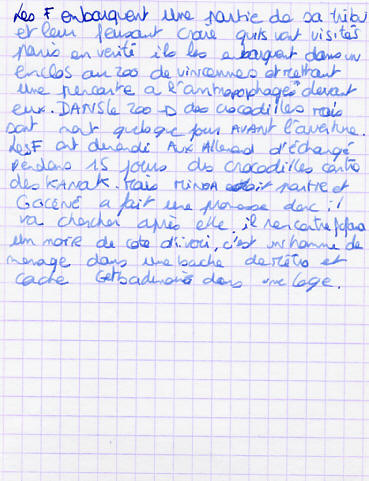 Les F enbarquent une partie de sa tribu
et leur fesant croire quils vont visités
paris en verité ils les enbarquent dans un
enclos au zoo de vincennes et mettant
une pencarte a l'antropophages devant
eux. DANS le zoo → des crocodilles mais
sont mort quelque jour AVANT l'aventure.
Les F ont demandé Aux Allemand d'échangé
pendans 15 jours des crocodilles contre
des KANAK. Mais MINOA doit partire et
Gocéné a fait une promesse donc il
va chercher après elle. il rencontre fofana
un noire de cote d'ivoire, c'est un homme de
menage dans une bouche de métro et
cache Get badimoin dans une loge.